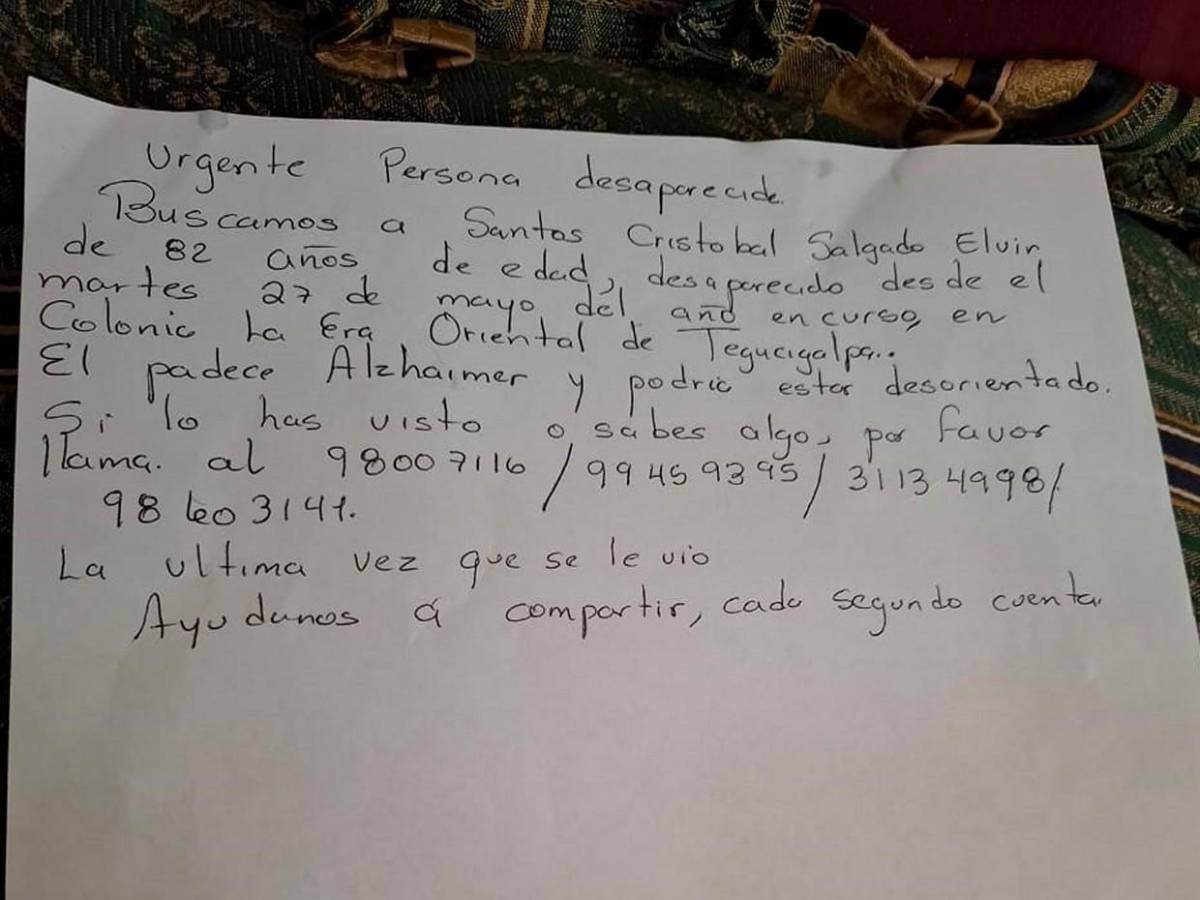 Urgente Persona desaparecida.
Buscamos a Santos Cristobal Salgado Elvir
de 82 años de edad, desaparecido desde el
martes 27 de mayo del año en curso, en
Colonia La Era Oriental de Tegucigalpa..
El padece Alzhaimer y podria estar desorientado.
Si lo has visto o sabes algo, por favor
llama. al 98007116 / 99459395 / 31134998/
98603141.
La ultima vez que se le vio
Ayudanos a compartir, cada segundo cuenta.